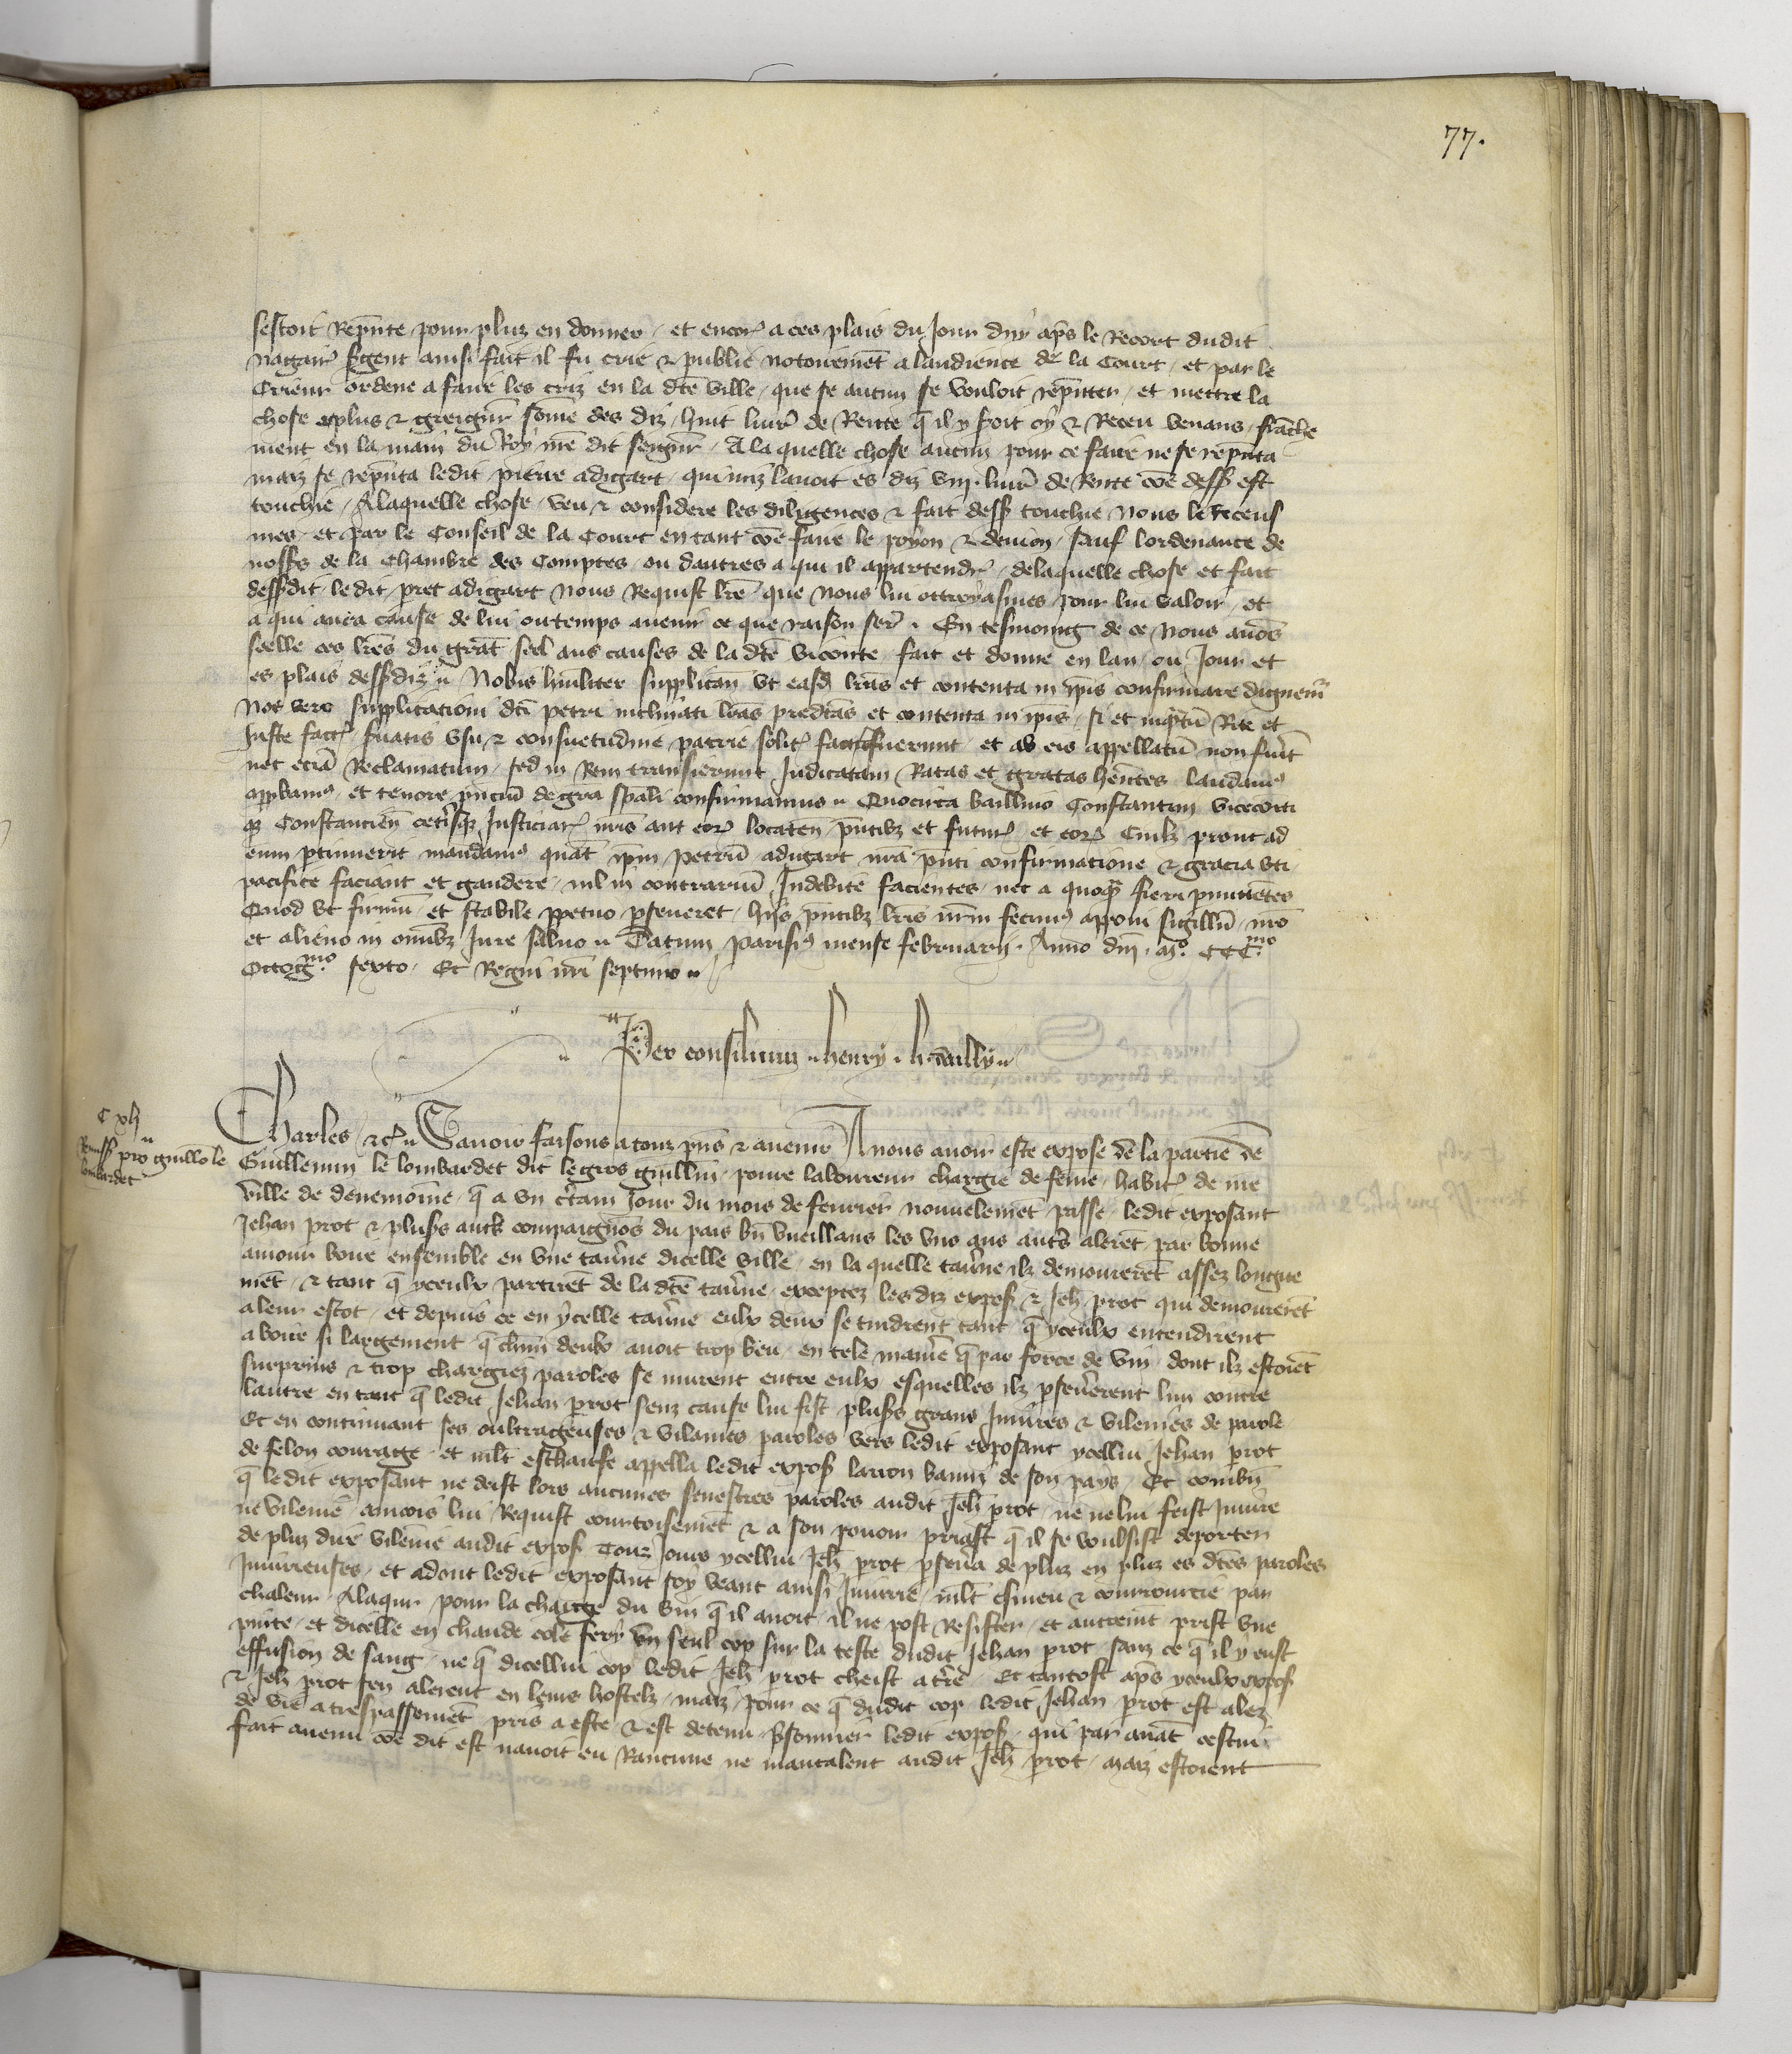 77.
sestoit rep̄nte pour pluz en donner / et encor̄ a ces plais du Jour duy ap̄s le Recort dudit
nagair̄ s̄gent ainsi fait il fu crie & publie notoiremēt a laudience de la Court / et par le
Crieur ordene a faire les criz en la dc̄e ville / que se aucun se vouloit rep̄nter / et mettre la
chose a plus & greign̄r some des diz / huit liur̄ de Rente q̄ il y seroit oy & Receu venans / frāche
ment en la main du Roy nr̄e dit seign̄r / A la quelle chose aucun pour ce faire ne se rep̄nta
maiz se rep̄nta ledit pierre adigart / qui miz lauoit es diz viij. liur̄ de Rente cōe dess̄ est
touchie / A laquelle chose / veu & considere les diligences & fait dess̄ touchie nous le receus
mes / et par le Conseil de la Court en tant cōe faire le poyon & deuion / sauf lordenance de
noss̄rs de la Chambre des Comptes / ou dautres a qui il appartendr̄ / de laquelle chose et fait
dess̄dit / ledit pierr̄ adigart nous Requist lr̄e que nous lui ottroyasmes pour lui valoir / et
a qui aura cause de lui ou temps auenir ce que raison ser̄ . En tesmoing de ce nous auōs
seelle ces lr̄es du grāt seel aus causes de la dc̄e viconte / fait et donne en lan / ou Jour et
es plais dess̄diz / Nobis hūiliter supplican̄ vt easd̄ lr̄as et contenta in ip̄is confirmare dignem̄r
Nos vero supplicationi dc̄i petri inclinati lr̄as predc̄as et contenta in ip̄is / si et inq̄ntū Rite et
Juste fact̄ / s̄uatis vsu & consuetudine patrie solit̄ facta fuerunt / et ab eis appellatū non fuit
nec eciā Reclamatum / sed in Rem transierunt Judicatam / Ratas et gratas hēntes laudam̄
app̄bam̄ / et tenore p̄nciū de gr̄a sp̄ali confirmamus // Quocirca baillivo Constantin̄ vicecoīti
q̄ Constancien̄ cet̄isq̄ Justiciar̄ nr̄is aut eor̄ locaten̄ p̄ntibz et futur̄ / et eor̄ Cuilz prout ad
eum p̄tinuerit mandam̄ quat̄ ip̄m Petrū adigart nr̄a p̄nti confirmatione & gracia vti
pacifice faciant et gaudere / nil in contrariū Indebite facientes / nec a quoq̄ fieri p̄mittētes
Quod vt firmū et stabile p̄petuo p̄seueret / hijs p̄ntibz lr̄is nr̄m fecim̄ apponi sigillū / nr̄o
et alieno in omnibz Jure saluo // Datum Parisī mense februarij . Anno dn̄i . mº. CCCmo.
Octogmo. sexto / Et Regni nr̄i septimo //
Per consilium // henry . h. mailly //
C xlj
Remiss̄ pro guill̄o le
lombardet
Charles &c̄ // Sauoir faisons a touz p̄ns & auenir A nous auoir este expose de la partie de
Guillemin le lombardet dit le gros guillin / poure laboureur chargie de feme / habit̄ de nr̄e
ville de denemoine / q̄ a vn c̄tain Jour du mois de feurier nouuelemēt passe / ledit exposant
Jehan prot & plus̄s autr̄ compaignōs du pais bn̄ vueillans les vns aus autr̄s alerēt par bonne
amour boire ensemble en vne tau̇ne dicelle ville / en la quelle tau̇ne ilz demourerēt assez longue
mēt / & tant q̄ yceulx partirēt de la dc̄e tau̇ne / exceptez les diz expos̄ & Jeh̄ prot qui demourerēt
a leur escot / et depuis ce en ycelle tau̇ne eulx deux se tindrent tant q̄ yceulx entendirent
a boire si largement q̄ ch̄un deulx auoit trop beu / en tele manie q̄ par force de vin / dont ilz estoiēt
surprins & trop chargiez paroles se murent entre eulx esquelles ilz p̄seu̇erent lun contre
lautre en tant q̄ ledit Jehan prot senz cause lui fist plus̄s grans Iniures & vilenies de parole
Et en continuant ses oultrageuses & vilaines paroles vers ledit exposant ycellui Jehan prot
de felon courage / et mlt̄ eschaufe appella ledit expos̄ larron banni de son pays / Et combn̄
q̄ ledit exposant ne deist lors aucunes senestres paroles audit Jeh̄ prot / ne ne lui feist Iniure
ne vilenie / aincois lui Requist courtoisemēt & a son pouoir priast q̄ il se voulsist deporter
de pluz dire vilenie audit expos̄ Touz jours ycellui Jeh̄ prot p̄seu̇a de pluz en pluz es dc̄es paroles
Iniurieuses / et adont ledit exposant soy veant ainsi Iniurie / mlt̄ esmeu & courroucie par
chaleur / A laqur̄ pour la charge du vin q̄ il auoit / il ne post Resister / et autreint prist vne
pinte / et dicelle en chaude cole fery vn seul cop sur la teste dudit Jehan prot / sanz ce q̄ il y eust
effusion de sang / ne q̄ dicellui cop ledit Jeh̄ prot cheist a tr̄e / Et tantost ap̄s yceulx expos̄
& Jeh̄ prot sen alerent en leurs hostelz / maiz / pour ce q̄ dudit cop ledit Jehan prot est alez
de vie a trespassemēt pris a este & est detenu p̄sonnier ledit expos̄ / qui par auāt cestui
fait auenu cōe dit est nauoit eu Rancune ne mautalent audit Jeh̄ prot / maiz estoient